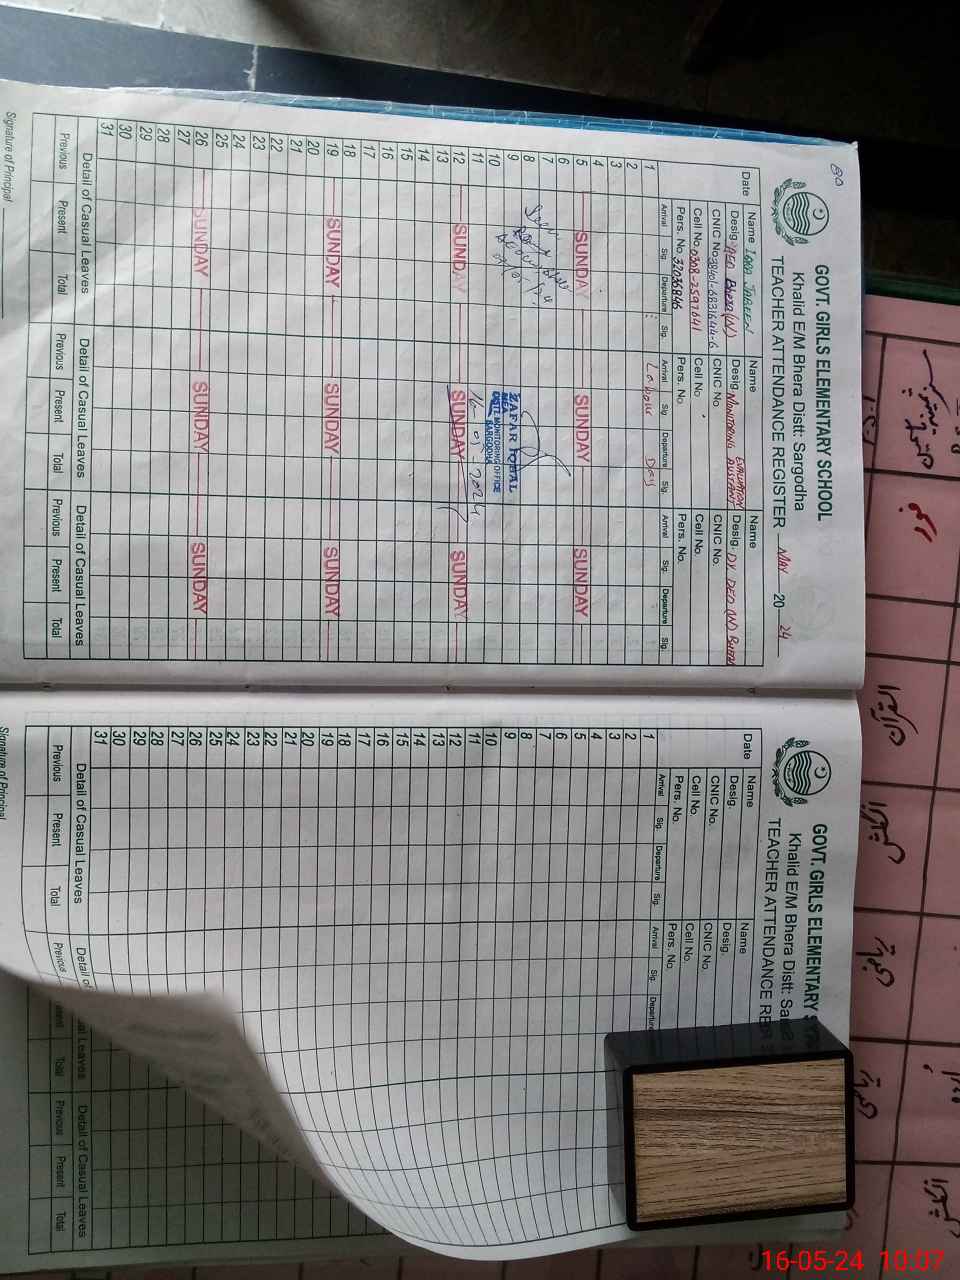 80
GOVT. GIRLS ELEMENTARY SCHOOL
Khalid E/M Bhera Distt: Sargodha
TEACHER ATTENDANCE REGISTER MAY 20 24
Date
Name IQRA JABEEN Name Name
Desig. AEO Bhera (W) Desig MONITORING EVALUATION ASSISTANT Desig. DY DEO (W) BHERA
CNIC No 38401-6831644-6 CNIC No CNIC No.
Cell No. 0308-2597641 Cell No. Cell No.
Pers. No 32036846 Pers. No Pers. No.
Arrival Sig. Departure Sig. Arrival Sig. Departure Sig. Arrival Sig. Departure Sig.
1 Labour Day
2
3
4
5 SUNDAY SUNDAY SUNDAY
6
7
8
9
10
ZAFAR IQBAL
MEA
MONITORING OFFICE
SARGODHA
11
12 SUNDAY SUNDAY SUNDAY
16-05-2024
13
14
15
16
17
18
19 SUNDAY SUNDAY SUNDAY
20
21
22
23
24
25
26 SUNDAY SUNDAY SUNDAY
27
28
29
30
31
Detail of Casual Leaves Detail of Casual Leaves Detail of Casual Leaves
Previous Present Total Previous Present Total Previous Present Total
Signature of Principal
GOVT. GIRLS ELEMENTARY
Khalid E/M Bhera Distt:
TEACHER ATTENDANCE
Date
Name Name
Desig. Desig.
CNIC No. CNIC No
Cell No. Cell No.
Pers. No. Pers. No.
Arrival Sig. Departure Sig. Arrival Sig. Departure
1
2
3
4
5
6
7
8
9
10
11
12
13
14
15
16
17
18
19
20
21
22
23
24
25
26
27
28
29
30
31
Detail of Casual Leaves Detail of Casual Leaves Detail of Casual Leaves
Previous Present Total Previous Present Total Previous Present Total
Signature of Principal
16-05-24 10:07